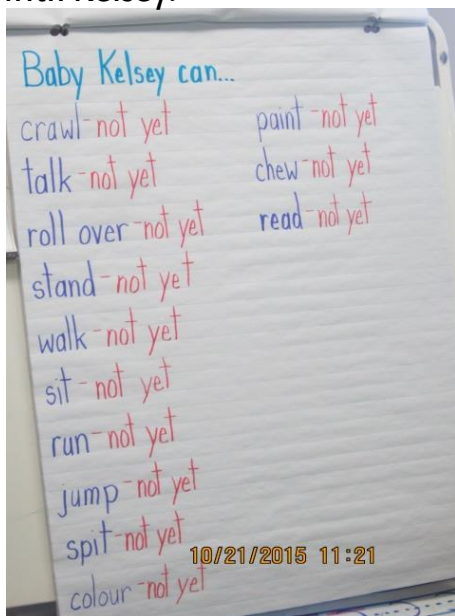 with Kelsey.
Baby Kelsey can...
crawl-not yet
talk-not yet
roll over-not yet
stand-not yet
walk-not yet
sit-not yet
run-not yet
jump-not yet
spit-not yet
colour-not yet
paint-not yet
chew-not yet
read-not yet
10/21/2015 11:21